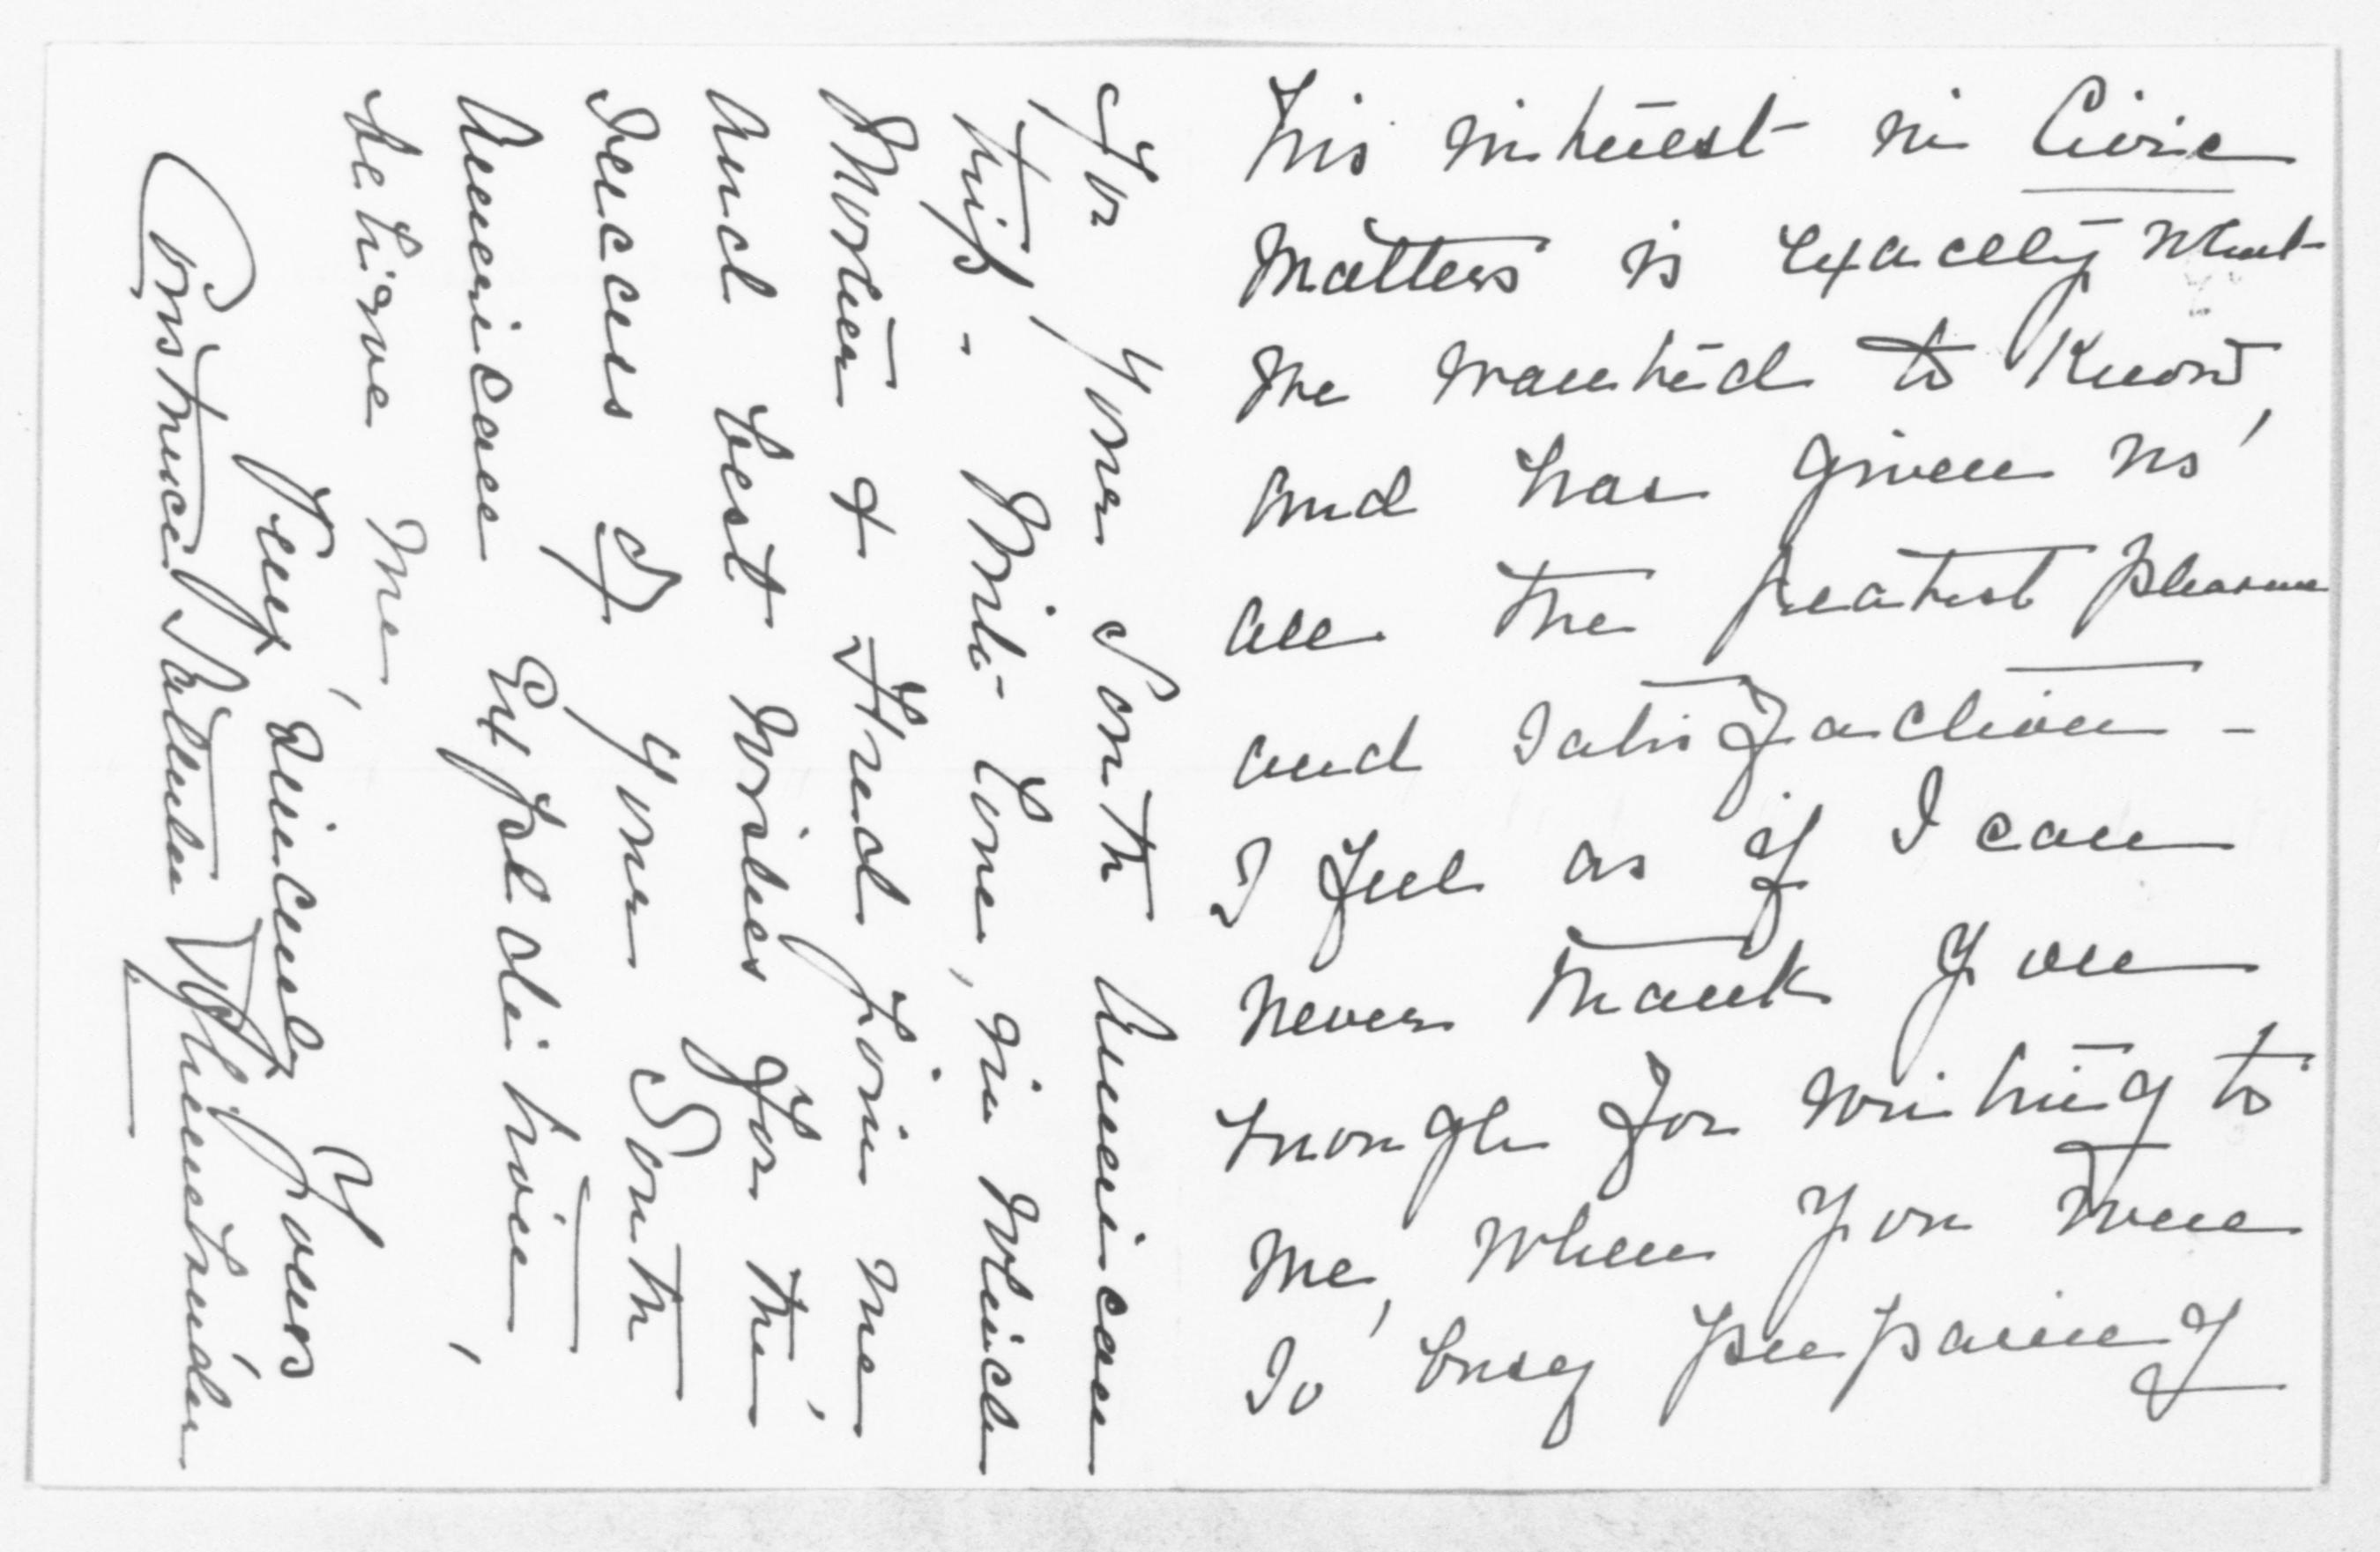 his interest in Civic
matters is exactly what
we wanted to know,
and has given us
all the greatest pleasure
and satisfaction -
I feel as if I can
never thank you
enough for writing to
me, when you were
so busy preparing
for your South American
trip, - With love, in which
Mother & Fred join me
and best wishes for the
success of your South
American Expedition,
believe me,
Very sincerely yours
Constance